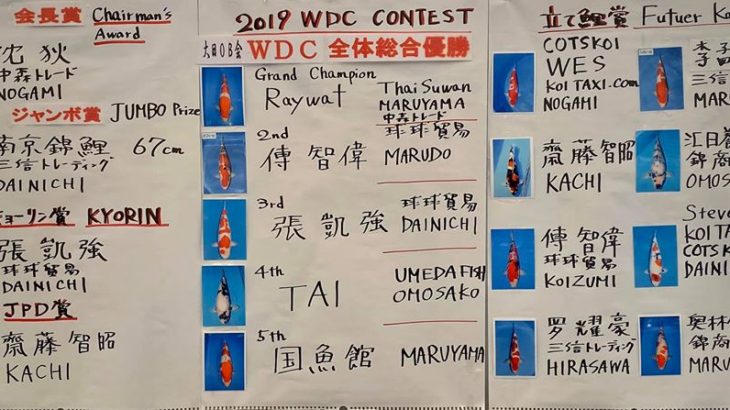 会長賞 Chairman's
Award
沈狄
中森トレード
NOGAMI
ジャンボ賞 JUMBO Prize
南京錦鯉 67cm
三信トレーディング
DAINICHI
キョーリン賞 KYORIN
張凱強
球球貿易
DAINICHI
JPD賞
齋藤智昭
KACHI
2019 WDC CONTEST
大日OB会 WDC 全体総合優勝
Grand Champion
Raywat
Thai Suwan
MARUYAMA
中森トレード
2nd
傅智偉
球球貿易
MARUDO
3rd
張凱強
球球貿易
DAINICHI
4th
TAI
UMEDA FISH
OMOSAKO
5th
国魚館 MARUYAMA
立て鯉賞 Futuer Ko
COTSKOI
WES
KOI TAXI.com
NOGAMI
三信
MAR
齋藤智昭
KACHI
錦商
OMOS
傅智偉
球球貿易
KOIZUMI
Steve
KOI TA
COTSK
DAIN
罗耀豪
三信トレーディング
HIRASAWA
奥林
錦商
MARU